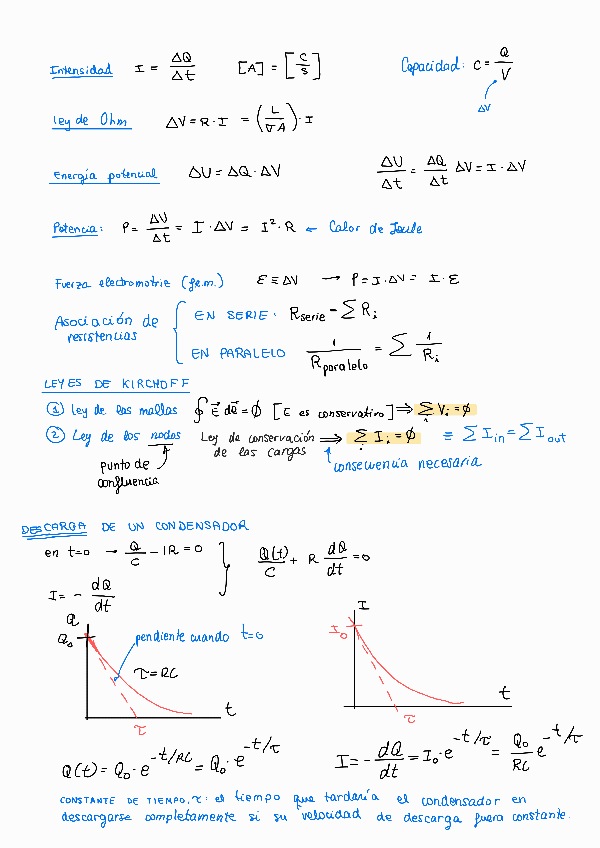 Intensidad I = ΔQ/Δt [A] = [C/s] Capacidad: C = Q/V
ΔV
Ley de Ohm ΔV = R · I = (L/σA) · I
Energía potencial ΔU = ΔQ · ΔV ΔU/Δt = ΔQ/Δt ΔV = I · ΔV
Potencia: P = ΔU/Δt = I · ΔV = I² · R ← Calor de Joule
Fuerza electromotriz (f.e.m.) ε ≡ ΔV → P = I · ΔV = I · ε
Asociación de resistencias
EN SERIE: Rserie = ΣRi
EN PARALELO 1/Rparalelo = Σ 1/Ri
LEYES DE KIRCHOFF
① ley de las mallas ∮ E⃗ dl⃗ = ∅ [E es conservativo] ⇒ Σi Vi = ∅
② Ley de los nodos Ley de conservación de las cargas ⇒ Σi Ii = ∅ ≡ ΣIin = ΣIout
punto de confluencia
consecuencia necesaria
DESCARGA DE UN CONDENSADOR
en t=0 → Q/C - IR = 0 Q(t)/C + R dQ/dt = 0
I = - dQ/dt
Q I
Q₀ pendiente cuando t=0 I₀
τ = RC
τ t τ t
Q(t) = Q₀ · e^(-t/RC) = Q₀ · e^(-t/τ) I = - dQ/dt = I₀ · e^(-t/τ) = Q₀/RC e^(-t/τ)
CONSTANTE DE TIEMPO, τ: el tiempo que tardaría el condensador en
descargarse completamente si su velocidad de descarga fuera constante.